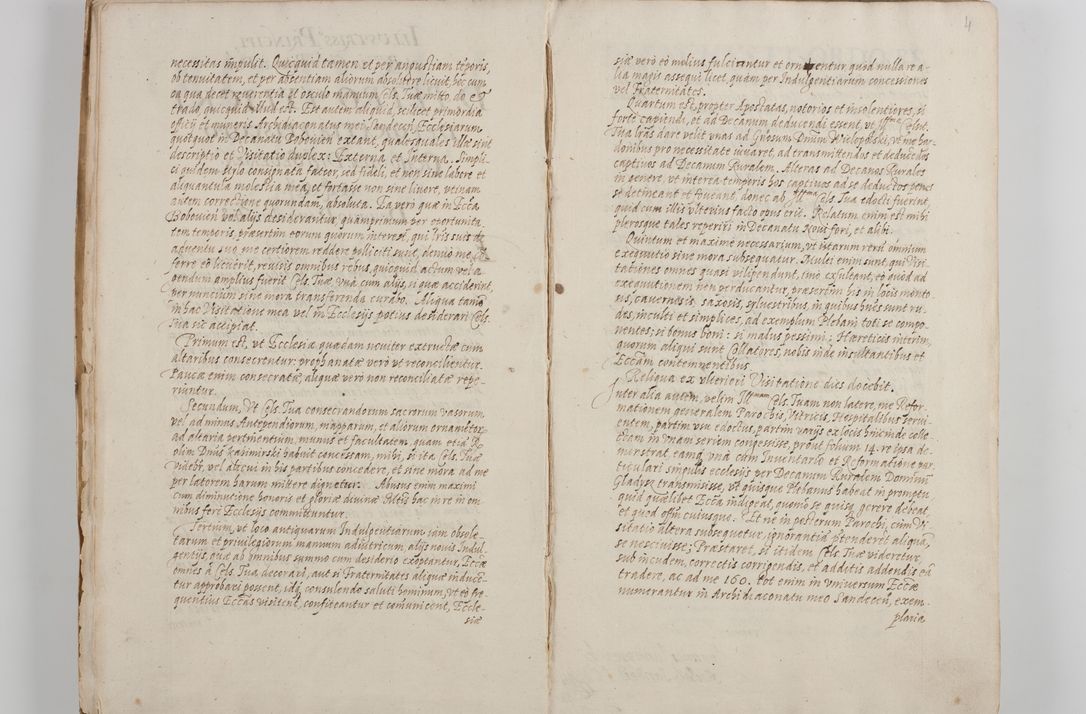 necessitas impulit. Quicquid tamen et per angustiam tẽporis,
ob tenuitatem, et per absentiam aliorum absoluere licuit, hoc cum
ea qua decet reuerentia et osculo manuum Cels. Tuæ mitto do et
trado, quicquid illud est. Est autem aliquid, scilicet primordia
officij et muneris Archidiaconatus mei Sandecen, Ecclesiarum
quotquot in Decanatu Bobouien extant, qualesquales illæ sint
descriptio et Visitatio duplex: Externa et Interna. Simpli-
ci quidem stylo consignata fateor, sed fideli, et non sine labore et
aliquantula molestia mea, et fortasse non sine liuore, vtinam
autem correctione quorundam, absoluta. Ea verò quæ in Eccĩa
Bobouien vel alijs desiderantur, quamprimum per oportunita-
tem temporis, præsertim eorum quorum interest, qui lrĩs suis de
aduentu suo me certiorem reddere polliciti sunt, denuo me
ferre eò licuerit, reuisis omnibus rebus, quicquid actum vel a-
gendum amplius fuerit Cels. Tuæ, vnà cum alijs, si quæ acciderint,
per nuncium sine mora transferenda curabo. Aliqua tamẽ
in hac Visitatione mea vel in Ecclesijs potius desiderari Cels.
Tua sic accipiat.
Primum est, vt Ecclesiæ quædam nouiter extructæ cum
altaribus consecrentur: prophanatæ verò vt reconcilientur.
Paucæ enim consecratæ, aliquæ vero non reconciliatæ repe-
riuntur.
Secundum, Vt Cels. Tua consecrandorum sacrorum vasorum,
vel ad minus Antependiorum, mapparum, et aliorum ornamẽtor.
ad altaria pertinentium, munus et facultatem, quam etiã R.
olim Dnũs Kasimirski habuit concessam, mihi, si ita Cels. Tuæ
videbr̃, vel alicui in his partibus concedere, et sine mora ad me
per latorem harum mittere dignetur. Abusus enim maximi
cum diminutione honoris et gloriæ diuinæ Mttis hac in re in om-
nibus ferè Ecclesijs committuntur.
Tertium, vt loco antiquarum Indulgentiarum, iam obsole-
tarum et priuilegiorum manuum adiutricum, alijs nouis Indul-
gentijs, quæ ab omnibus summo cum desiderio exoptantur, Eccĩæ
omnes à Cels. Tua decorari, aut si Fraternitates aliquæ induce-
tur approbari possent, idq, consulendo saluti hominum, vt eò fre-
quentius Eccĩas visitent, confiteantur et comunicent, Eccle-
siæ
4
siæ verò eò melius fulciantur et ornarentur, quòd nulla re a-
lia magis assequi licet, quàm per Indulgentiarum concessiones
vel Fraternitates.
Quartum est, propter Apostatas, notorios et insolentiores, si
fortè capiendi, et ad Decanum deducendi essent, vt Illma Celst.
Tua lrãs dare velit vnas ad Gnõsum Dnũm Wielopolski, vt me har-
donibus pro necessitate iuuaret, ad transmittendos et deducẽdos
captiuos ad Decanum Ruralem. Alteras ad Decanos Rurales
in genere, vt interea temporis hos captiuos ad se deductos penes
se detineant et foueant, donec ab Illma Cels. Tua edocti fuerint,
quid cum illis vlterius facto opus erit. Relatum enim est mihi
plerosque tales reperiri in Decanatu Noui fori, et alibi.
Quintum et maximè necessarium, vt istarum rerũ omnium
exequutio sine mora subsequatur. Multi enim sunt, qui Visi-
tationes omnes quasi vilipendunt, imò exsuleant, eò quòd ad
exequutionem non perducantur, præsertim his in locis monto-
sis, cauernosis, saxosis, syluestribus, in quibus hnĩes sunt ru-
des, inculti et simplices, ad exemplum Plebani toti se compo-
nentes: si bonus boni: si malus pessimi: Hæreticis interim,
quorum aliqui sunt Collatores, nobis inde insultantibus et
Eccĩam contemnentibus.
Reliqua ex vlteriori Visitatione dies docebit.
Inter alia autem, velim Illmam Cels. Tuam non latere, me Refor-
mationem generalem Parochis, Vitricis, Hospitalibus serui-
entem, partim vsu edoctus, partim varijs ex locis hinc inde colle-
ctam in vnam seriem congessisse, prout folium 14. re ipsa de-
mõstrat, eamq, vnà cum Inuentario et Reformatione par-
ticulari singulis ecclesijs per Decanum Ruralem Dominũ
Gladysz transmisisse, vt quisque Plebanus habeat in promptu
quid quælibet Eccĩa indigeat, quomõ se quisq, gerere debeat,
et quod offm cuiusque. Et ne in posterum Parochi, cùm Vi-
sitatio altera subsequetur, ignorantiã prætenderent aliquã,
se nesciuisse; Præstaret, si itidem Cels. Tuæ videretur,
sub incudem, correctis corrigendis, et additis addendis eã
tradere, ac ad me 160. tot enim in vniuersum Eccĩæ
numerantur in Archidiaconatu meo Sandecen, exem-
plaria